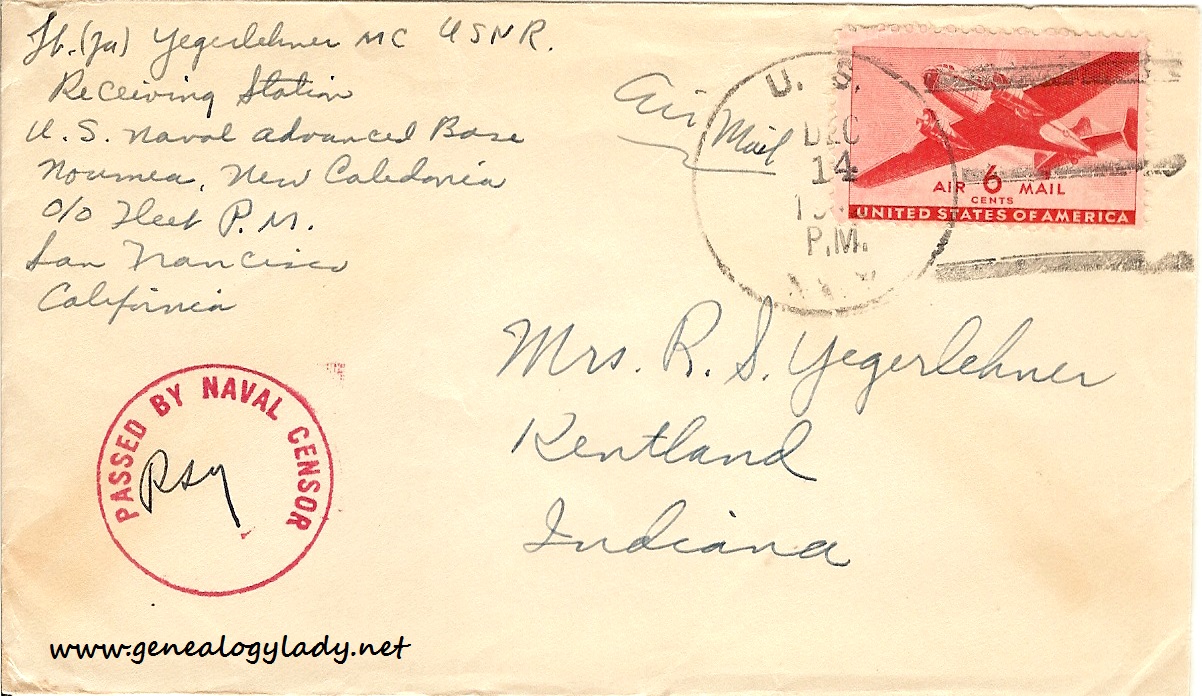 Lt. (jg) Yegerlehner MC USNR.
Receiving Station
U.S. Naval Advanced Base
Noumea, New Caledonia
c/o Fleet P.M.
San Francisco
California
Air Mail
U. S.
DEC
14
P.M.
AIR 6 MAIL
CENTS
UNITED STATES OF AMERICA
Mrs. R. S. Yegerlehner
Kentland
Indiana
PASSED BY NAVAL CENSOR
RSY
www.genealogylady.net